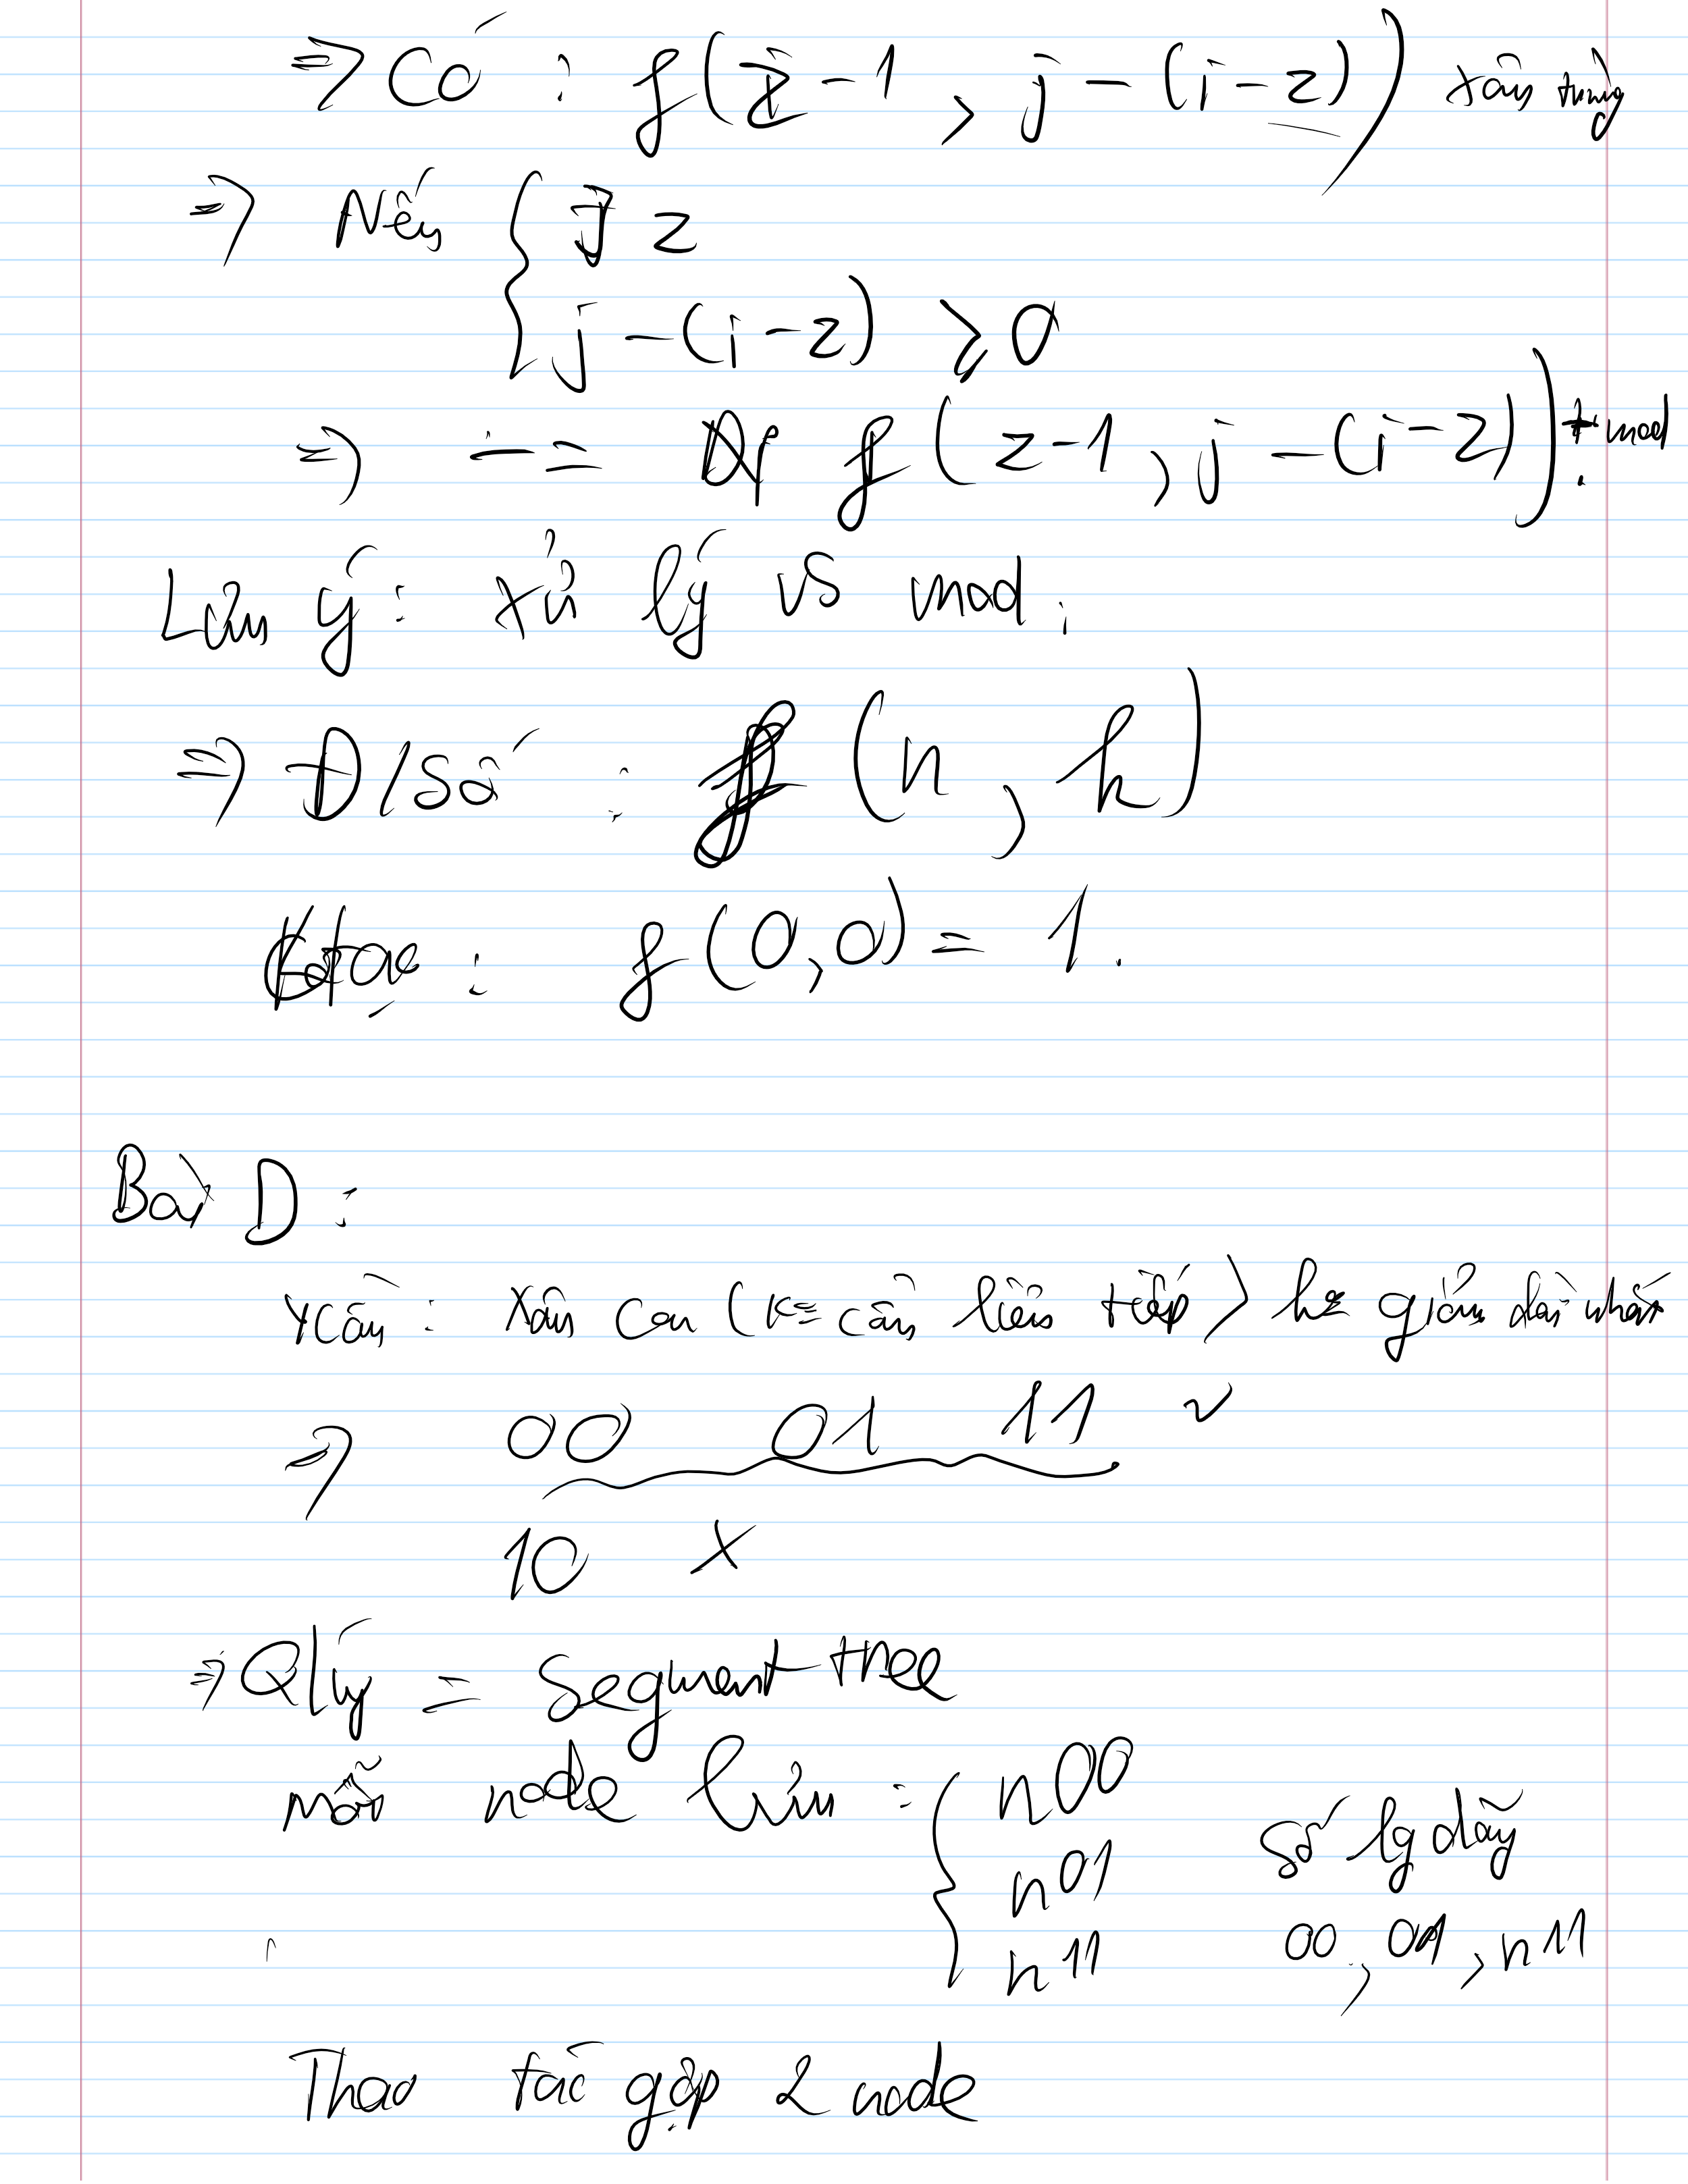 ⇒ Có : f(z-1, j-(i-z)) xâu trùng
⇒ Nếu { ∃ z
j-(i-z) ≥ 0
⇒ -= f(z-1, j-(i-z)) + mod
Lưu ý: xử lý vs mod.
⇒ Đ/số : f(n, k)
K/tạo : f(0,0) = 1.
Bài D:
Ycầu: Xâu con (k cần liên tiếp) k giảm dài nhất
⇒ 00 01 11 ✓
10 x
⇒ Qlý = Segment tree
mỗi node lưu : { n00
n01
n11
số lg dãy
00, 01, n11
Thao tác gộp 2 node